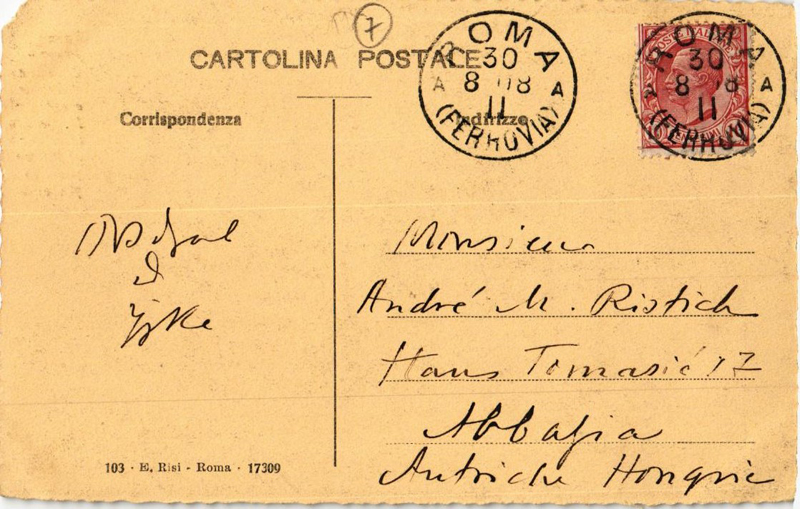 7
CARTOLINA POSTALE
ROMA
30
8 18
11
A A
(FERROVIA)
ROMA
30
8 18
11
A A
(FERROVIA)
Corrispondenza
Indirizzo
Monsieur
André M. Ristich
Haus Tomasić 17
Abbazia
Autriche Hongrie
103 - E. Risi - Roma - 17309